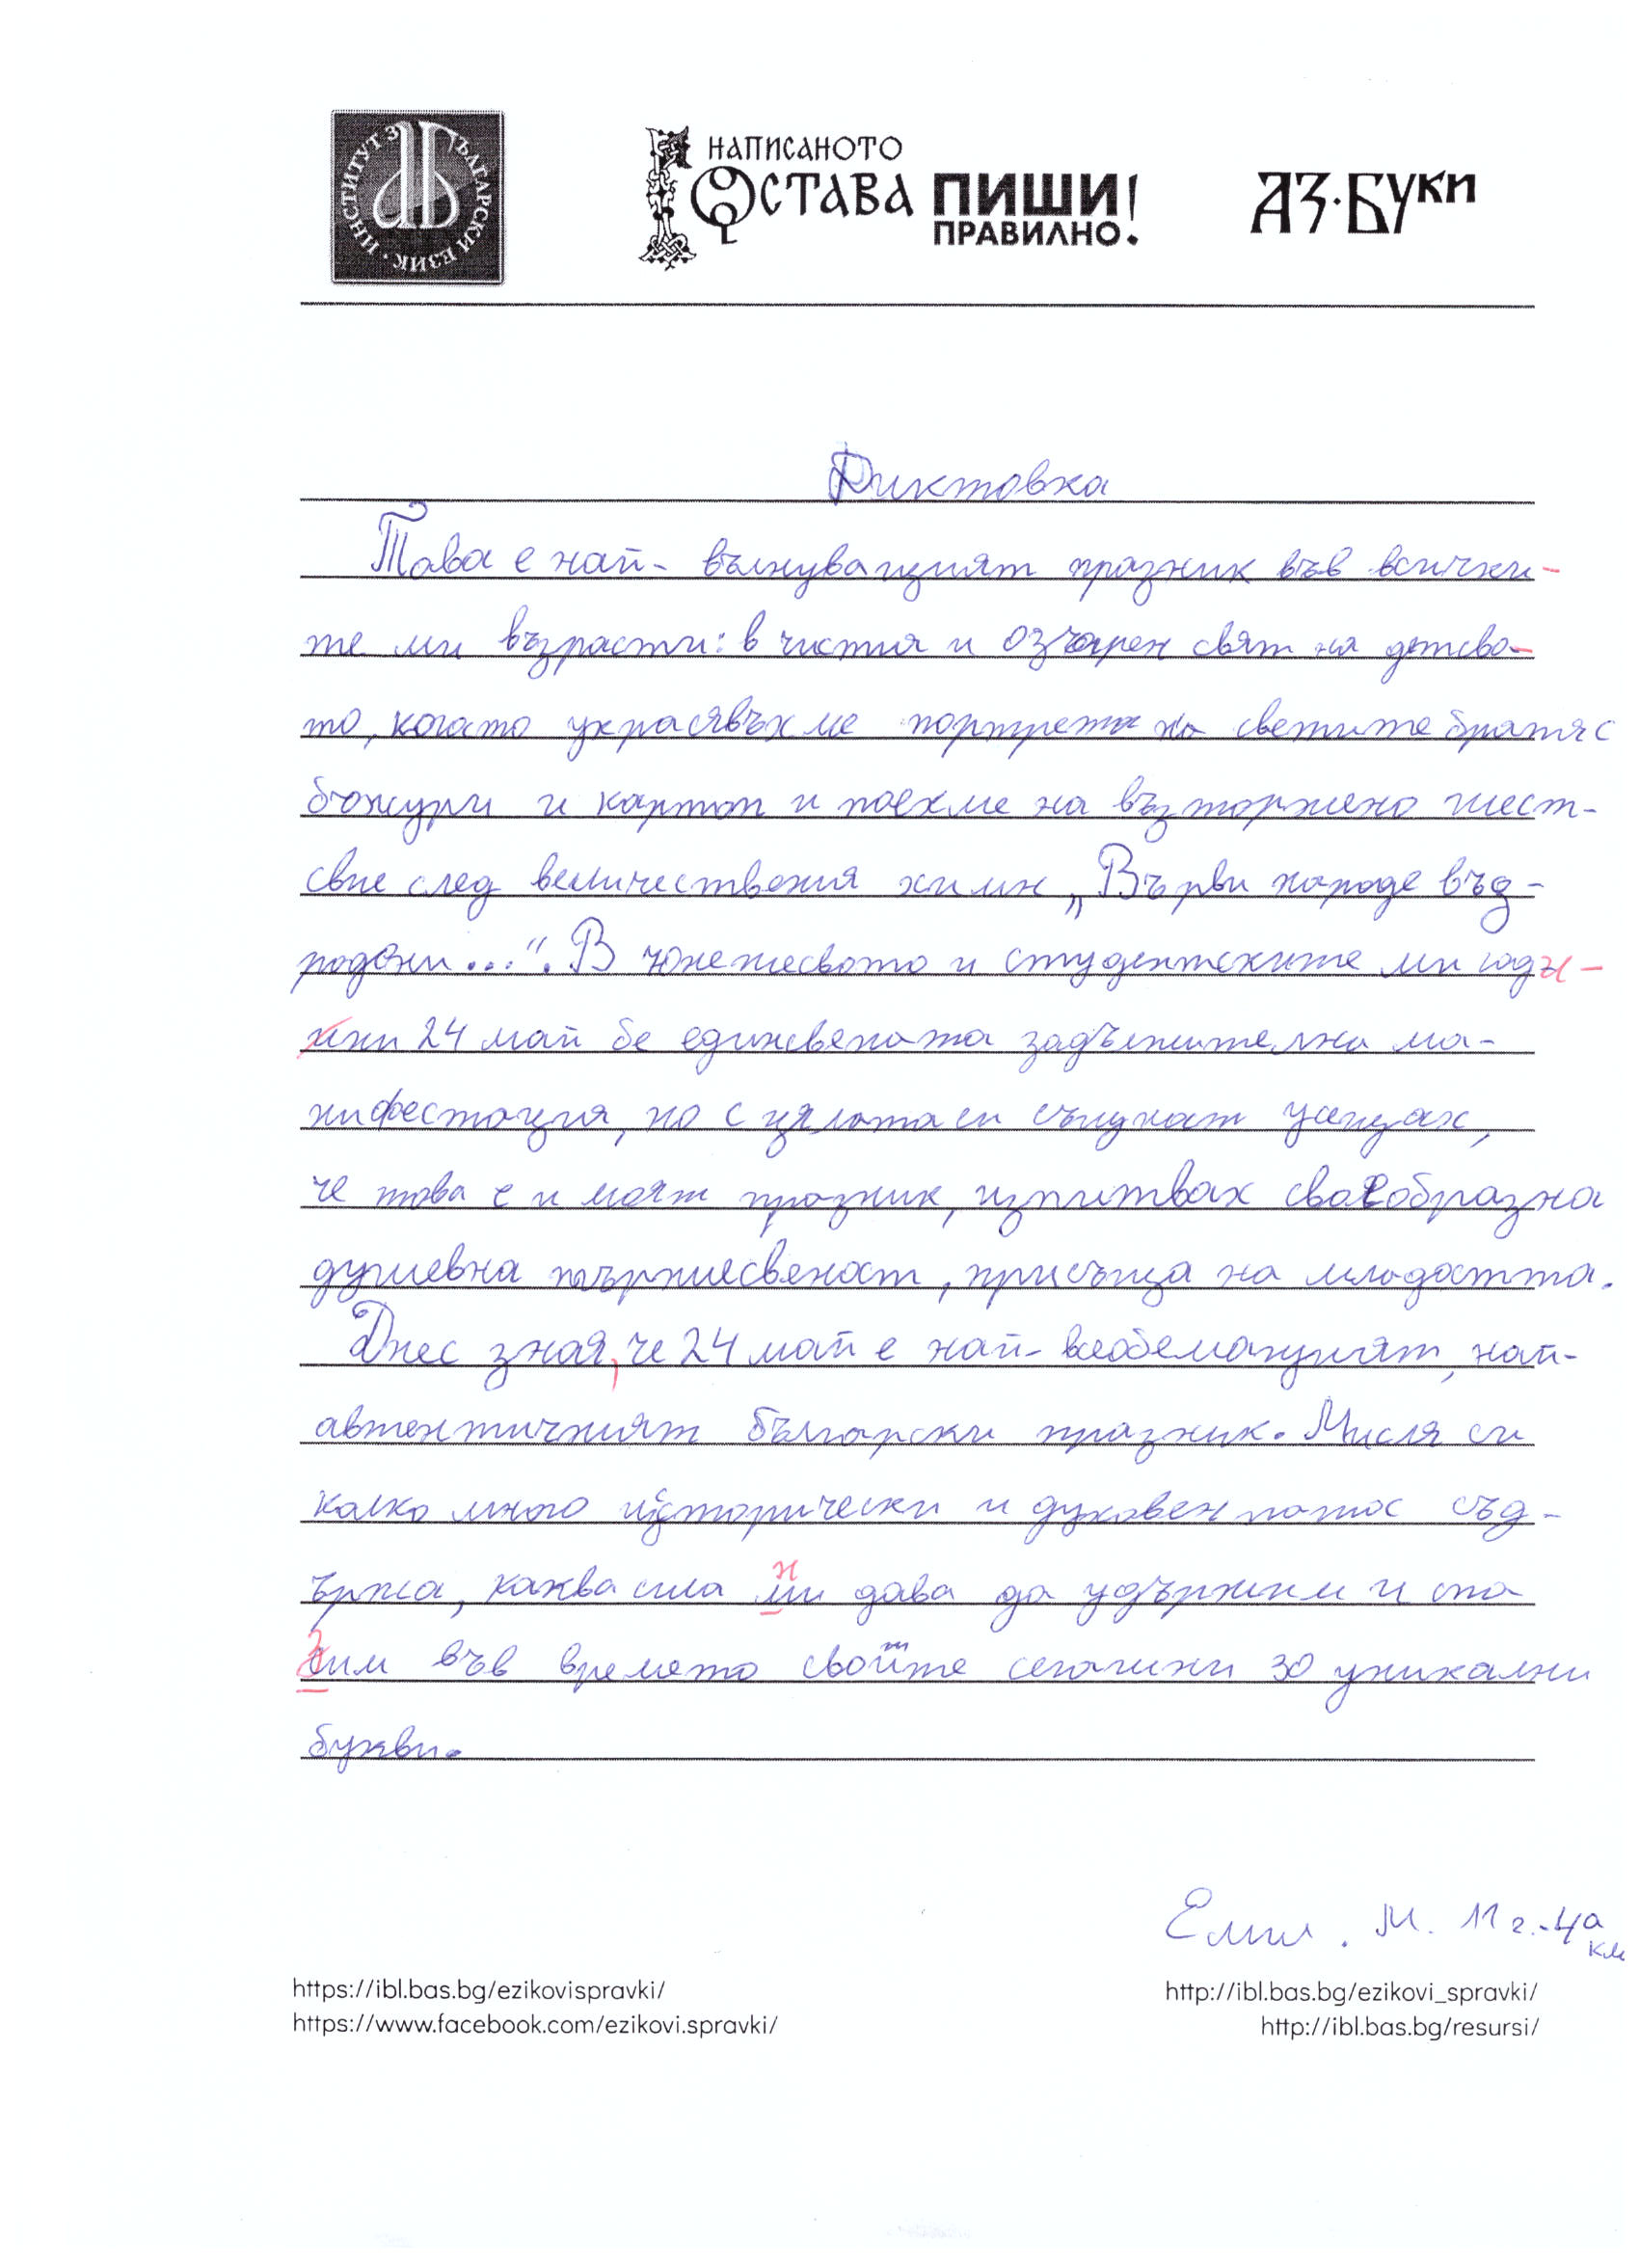 ИНСТИТУТ ЗА БЪЛГАРСКИ ЕЗИК
НАПИСАНОТО
ОСТАВА ПИШИ
ПРАВИЛНО!
АЗ·БУКИ
Диктовка
Това е най-вълнуващият празник във всички-
те ми възрасти: в чистия и озарен свят на детсво-
то, когато украсявъхме портрета на светите братя с
божури и картоп и поехме на възторжено шест-
свие след величествения химн „Върви народе въз-
родени...". В юнешесвото и студентските ми годи-
ни 24 май бе единсвената задължителна ма-
нифестация, но с цялата си същност усещах,
че това е и моят празник, изпитвах своеобразна
душевна тържесвеност, присъща на младостта.
Днес зная, че 24 май е най-всеобемащият, най-
автентичният български празник. Мисля си
колко много исторически и духовен патос съд-
ържа, каква сила ни дава да удържим и спа
зим във времето своите сегашни 30 уникални
букви.
Емил. М. 11 г.-4а
кл
https://ibl.bas.bg/ezikovispravki/
http://ibl.bas.bg/ezikovi_spravki/
https://www.facebook.com/ezikovi.spravki/
http://ibl.bas.bg/resursi/